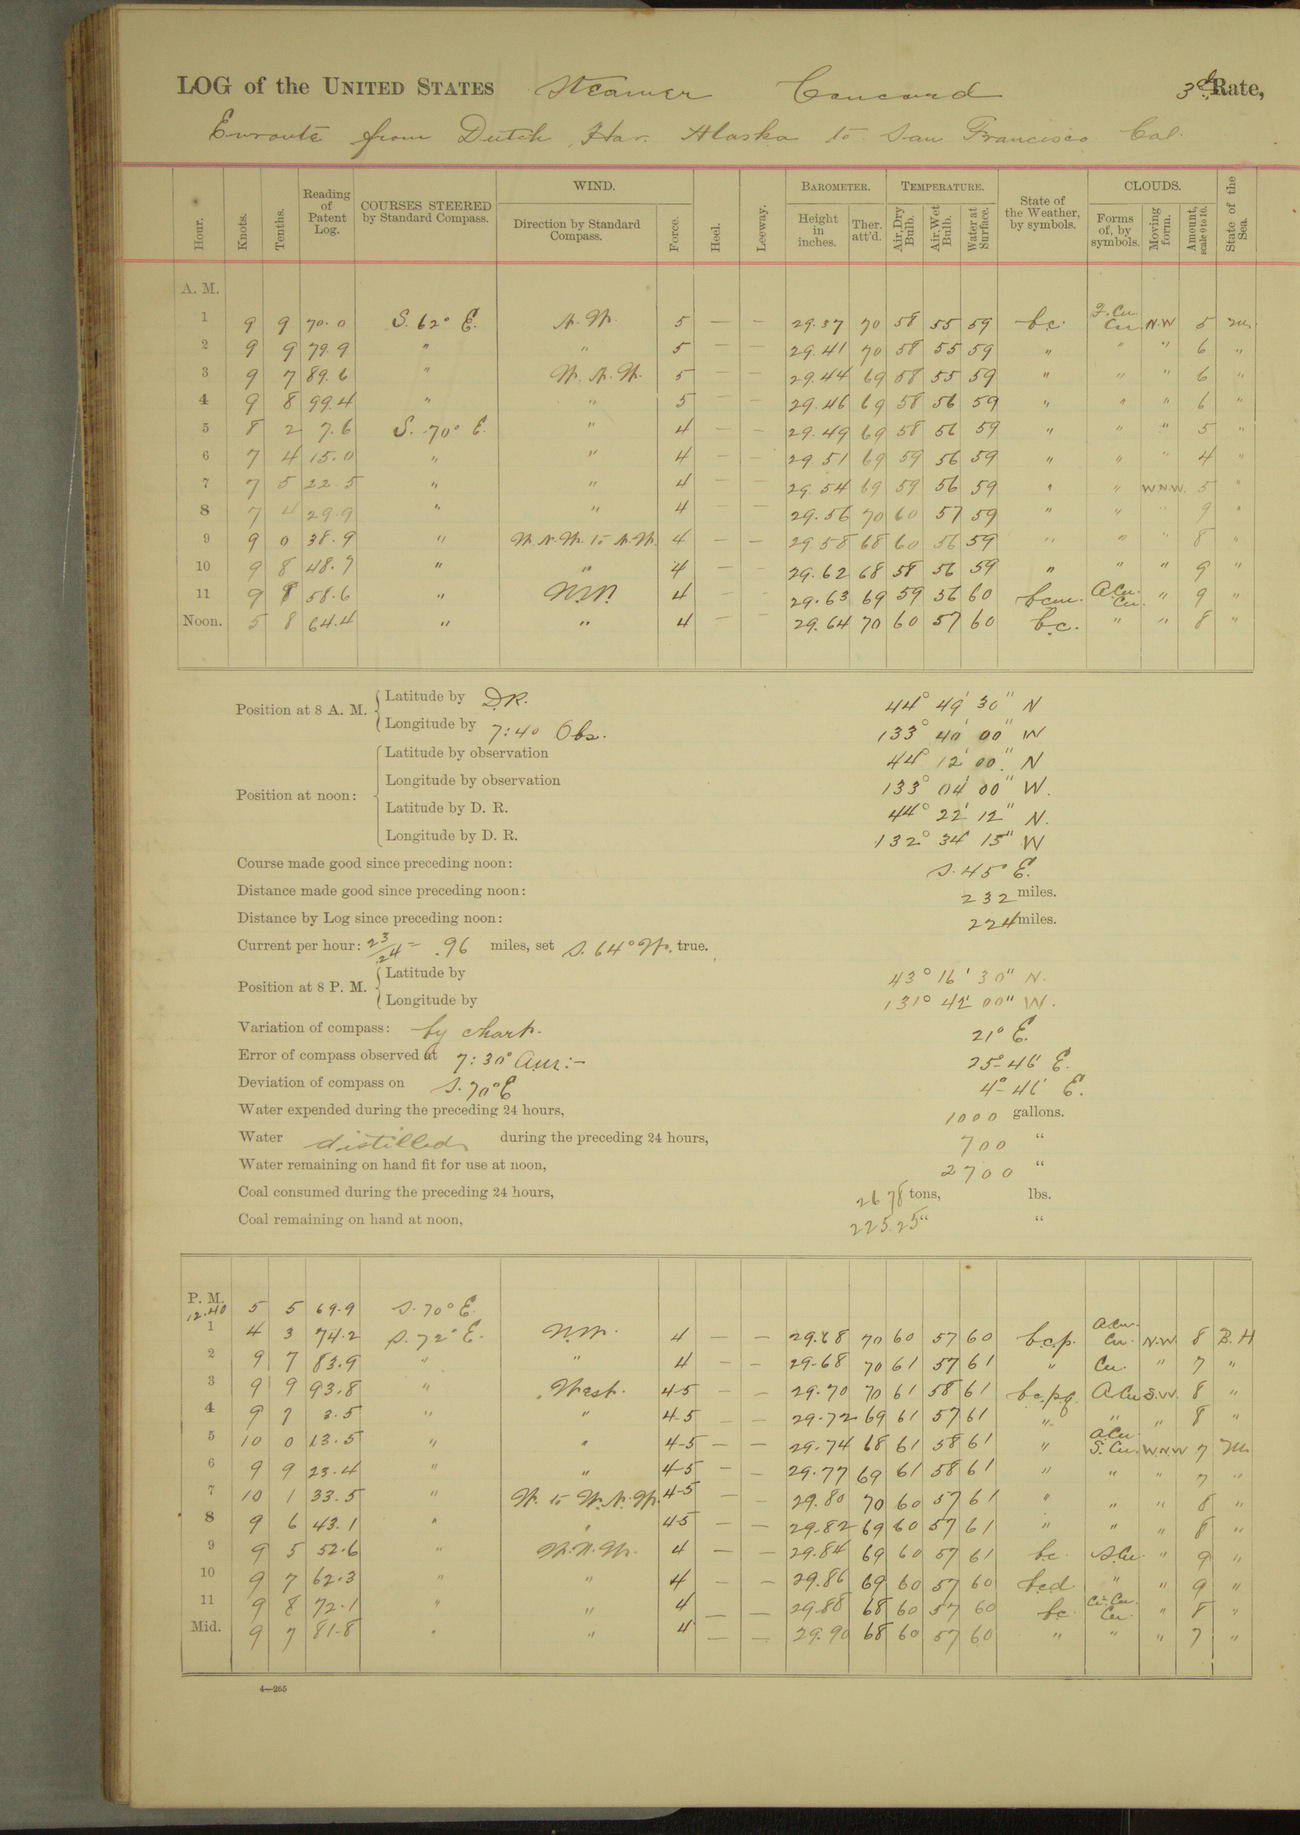 LOG of the UNITED STATES Steamer Concord 3d Rate,
Enroute from Dutch Har. Alaska to San Francisco Cal.
Hour. Knots. Tenths. Reading of Patent Log. COURSES STEERED by Standard Compass. WIND. Direction by Standard Compass. Force. Heel. Leeway. BAROMETER. Height in inches. Ther. att'd. TEMPERATURE. Air, Dry Bulb. Air, Wet Bulb. Water at Surface. State of the Weather, by symbols. CLOUDS. Forms of, by symbols. Moving form. Amount, scale 0 to 10. State of the Sea.
A. M.
1 9 9 70.0 S. 62° E. N.W. 5 — — 29.37 70 58 55 59 b.c. Cu. N.W 5 m.
2 9 9 79.9 " " 5 — — 29.41 70 58 55 59 " " " 6 "
3 9 7 89.6 " W.N.W. 5 — — 29.44 69 58 55 59 " " " 6 "
4 9 8 99.4 " " 5 — — 29.46 69 58 56 59 " " " 6 "
5 8 2 7.6 S. 70° E. " 4 — — 29.49 69 58 56 59 " " " 5 "
6 7 4 15.0 " " 4 — — 29.51 69 59 56 59 " " " 4 "
7 7 5 22.5 " " 4 — — 29.54 69 59 56 59 " " W.N.W. 5 "
8 7 4 29.9 " " 4 — — 29.56 70 60 57 59 " " " 9 "
9 9 0 38.9 " W.N.W. to N.W. 4 — — 29.58 68 60 56 59 " " " 8 "
10 9 8 48.7 " " 4 — — 29.62 68 58 56 59 " " " 9 "
11 9 9 58.6 " N.W. 4 — — 29.63 69 59 56 60 bcm. A.Cu. Cu. " 9 "
Noon. 5 8 64.4 " " 4 — — 29.64 70 60 57 60 b.c. " " 8 "
Position at 8 A. M. Latitude by D.R. 44° 49' 30" N
Longitude by 7:40 Obs. 133° 40' 00" W
Position at noon: Latitude by observation 44° 12' 00" N
Longitude by observation 133° 04' 00" W.
Latitude by D. R. 44° 22' 12" N.
Longitude by D. R. 132° 34' 15" W
Course made good since preceding noon: S. 45° E.
Distance made good since preceding noon: 232 miles.
Distance by Log since preceding noon: 224 miles.
Current per hour: 23/24 = .96 miles, set S. 64° W. true.
Position at 8 P. M. Latitude by 43° 16' 30" N.
Longitude by 131° 42' 00" W.
Variation of compass: by chart. 21° E.
Error of compass observed at 7:30 25°-46' E.
Deviation of compass on S. 70° E 4°-46' E.
Water expended during the preceding 24 hours, 1000 gallons.
Water distilled during the preceding 24 hours, 700 "
Water remaining on hand fit for use at noon, 2700 "
Coal consumed during the preceding 24 hours, 26 78 tons, lbs.
Coal remaining on hand at noon, 225.25 " "
P. M.
12.40 5 5 69.9 S. 70° E.
1 4 3 74.2 S. 72° E. N.W. 4 — — 29.68 70 60 57 60 b.c.p. A.Cu. Cu. N.W. 8 B.H
2 9 7 83.9 " " 4 — — 29.68 70 61 57 61 " Cu. " 7 "
3 9 9 93.8 " West. 4-5 — — 29.70 70 61 58 61 b.c.p.q. A.Cu S.W. 8 "
4 9 7 3.5 " " 4-5 — — 29.72 69 61 57 61 " " " 8 "
5 10 0 13.5 " " 4-5 — — 29.74 68 61 58 61 " A.Cu. S.Cu. W.N.W 7 m.
6 9 9 23.4 " " 4-5 — — 29.77 69 61 58 61 " " " 7 "
7 10 1 33.5 " W. to W.N.W. 4-5 — — 29.80 70 60 57 61 " " " 8 "
8 9 6 43.1 " " 4-5 — — 29.82 69 60 57 61 " " " 8 "
9 9 5 52.6 " W.N.W. 4 — — 29.84 69 60 57 61 bc. S.Cu. " 9 "
10 9 7 62.3 " " 4 — — 29.86 69 60 57 60 bcd " " 9 "
11 9 8 72.1 " " 4 — — 29.88 68 60 57 60 bc Ci-Cu. Cu. " 8 "
Mid. 9 7 81.8 " " 4 — — 29.90 68 60 57 60 " " " 7 "
4—265